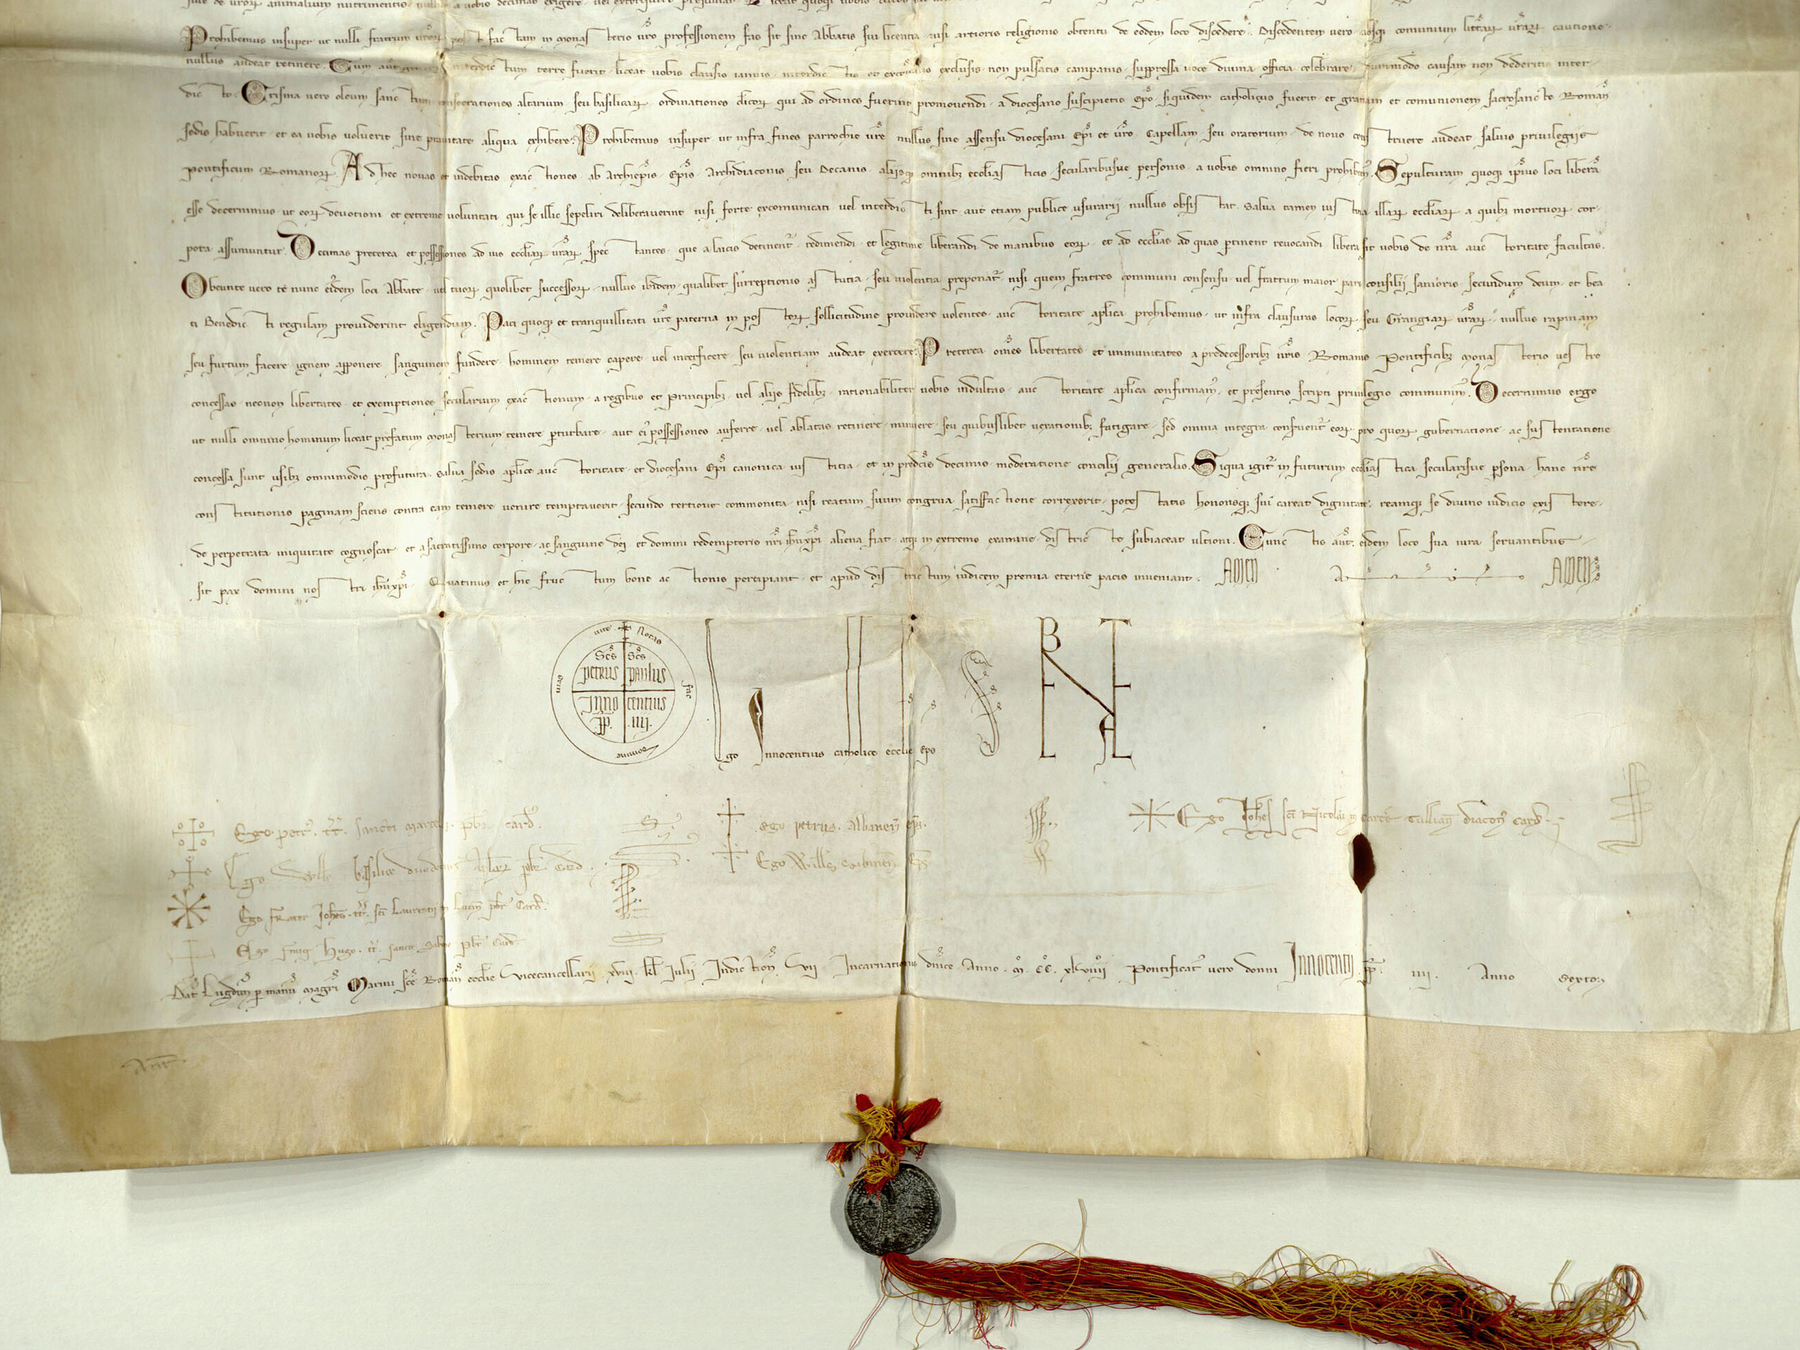 sive de vr̄or animalium nutrimentis nullus a vobis decimas exigere vel extorquere presumat Liceat quoqȝ vobis
Prohibemus insuper ut nulli fratrum vr̄or post factam in monasterio vr̄o professionem fas sit sine Abbatis sui licentia nisi artioris religionis obtentu de eodem loco discedere. Discedentem vero absqȝ comunium litt̄ar vr̄ar cautione
nullus audeat retinere. Cum aut̄ generale interdictum terre fuerit liceat vobis clausis ianuis interdictis et excōicatis exclusis non pulsatis campanis suppressa voce divina officia celebrare dummodo causam non dederitis inter-
dicto. Crisma vero oleum sanctum consecrationes altarium seu basilicar ordinationes clicor qui ad ordines fuerint promovendi a diocesano suscipietis Ep̄o siquidem catholicus fuerit et gratiam et comunionem sacrosancte Roman̄
sedis habuerit et ea vobis voluerit sine pravitate aliqua exhibere. Prohibemus insuper ut infra fines parrochie vr̄e nullus sine assensu diocesani Ep̄i et vr̄o Capellam seu oratorium de novo construere audeat salvis privilegiis
pontificum Romanor. Ad hec novas et indebitas exactiones ab Archiep̄is Ep̄is Archidiaconis seu Decanis alijsqȝ omnibȝ ecclesiasticis secularibusve personis a vobis omnino fieri prohibem̄. Sepulturam quoqȝ ip̄ius loci liberā
esse decernimus ut eor devotioni et extreme voluntati qui se illic sepeliri deliberaverint nisi forte excomunicati vel interdicti sint aut etiam publice usurarij nullus obsistat. Salva tamen iustitia illar eccl̄iar a quibȝ mortuor cor-
pora assumuntur. Decimas preterea et possessiones ad ius eccl̄iar vr̄ar spectantes que a laicis detinent̄ redimendi et legitime liberandi de manibus eor et ad eccl̄ias ad quas ꝑtinent revocandi libera sit vobis de nr̄a auctoritate facultas.
Obeunte vero te nunc eiusdem loci Abbate vel tuor quolibet successor nullus ibidem qualibet surreptionis astutia seu violentia preponat̄ nisi quem fratres communi consensu vel fratrum maior pars consilij sanioris secundum deum et bea
ti Benedicti regulam providerint eligendum. Paci quoqȝ et tranquillitati vr̄e paterna in poster sollicitudine providere volentes auctoritate ap̄lica prohibemus ut infra clausuras locor seu Grangiar vr̄ar nullus rapinam
seu furtum facere ignem apponere sanguinem fundere hominem temere capere vel interficere seu violentiam audeat exercere. Preterea om̄es libertates et immunitates a predecessoribȝ nr̄is Romanis Pontificibȝ monasterio vestro
concessas necnon libertates et exemptiones secularium exactionum a regibus et Principibȝ vel alijs fidelibȝ rationabiliter vobis indultas auctoritate ap̄lica confirmam̄ et presentis scripti privilegio communim̄. Decernimus ergo
ut nulli omnino hominum liceat prefatum monasterium temere ꝑturbare aut ei᷒ possessiones auferre vel ablatas retinere minuere seu quibuslibet vexationibȝ fatigare sed omnia integra conservent̄ eor pro quor gubernatione ac sustentatione
concessa sunt usibȝ omnimodis profutura. Salva sedis ap̄lice auctoritate et diocesani Ep̄i canonica iustitia et in predc̄is decimis moderatione concilii generalis. Siqua igit̄ in futurum eccl̄iastica secularisve ꝑsona hanc nr̄e
constitutionis paginam sciens contra eam temere venire temptaverit secundo tertiove commonita nisi reatum suum congrua satisfactione correxerit potestatis honorisqȝ sui careat dignitate reamqȝ se divino iudicio existere
de perpetrata iniquitate cognoscat et a sacratissimo corpore ac sanguine dei et domini redemptoris nr̄i ih̄u xp̄i aliena fiat atqȝ in extremo examine districte subiaceat ultioni. Cunctis aut̄ eidem loco sua iura servantibus
sit pax domini nostri ih̄u xp̄i Quatinus et hic fructum bone actionis percipiant et apud districtum iudicem premia eterne pacis inveniant. AMEN A AMEN
notas fac michi domine vias
Sc̄s Sc̄s
PETRUS PAULUS
INNO CENTIUS
PP. IIII.
Ego Innocentius catholice ecclie Ep̄s
BENE VALETE
Ego petr᷒ tt̄ sancti marcelli pb̄r card̄.
Ego petrus Albanen̄ ep̄s
Ego Ioh̄es sc̄i Nicolai in carcere tullian̄ diacon᷒ card̄.
Ego Will̄s basilice duodecim pb̄r Card̄.
Ego Will̄s Sabinen̄ Ep̄s
Ego frater Ioh̄es tt̄ sc̄i Laurentij in Lucin̄ pb̄r Card̄.
Ego frater Hugo tt̄ sancte Sabine pb̄r Card̄
Dat̄ Lugdun̄ ꝑ manū magr̄i Marini sc̄e Roman̄ eccl̄ie Vicecancellarij xviii kl̄ Iulij Indiction̄ vii Incarnationis dn̄ice Anno m̄ cc̄ xlviiii Pontificat̄ vero donni INNOCENTIJ pp̄ iiij Anno Sexto